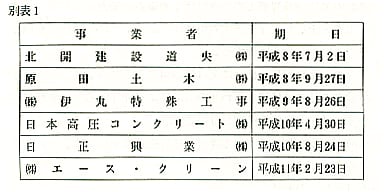 別表1
事業者 期日
北開建設道央㈱ 平成8年7月2日
原田土木㈲ 平成8年9月27日
㈱伊丸特殊工事 平成9年8月26日
日本高圧コンクリート㈱ 平成10年4月30日
日正興業㈱ 平成10年8月24日
㈱エース・クリーン 平成11年2月23日